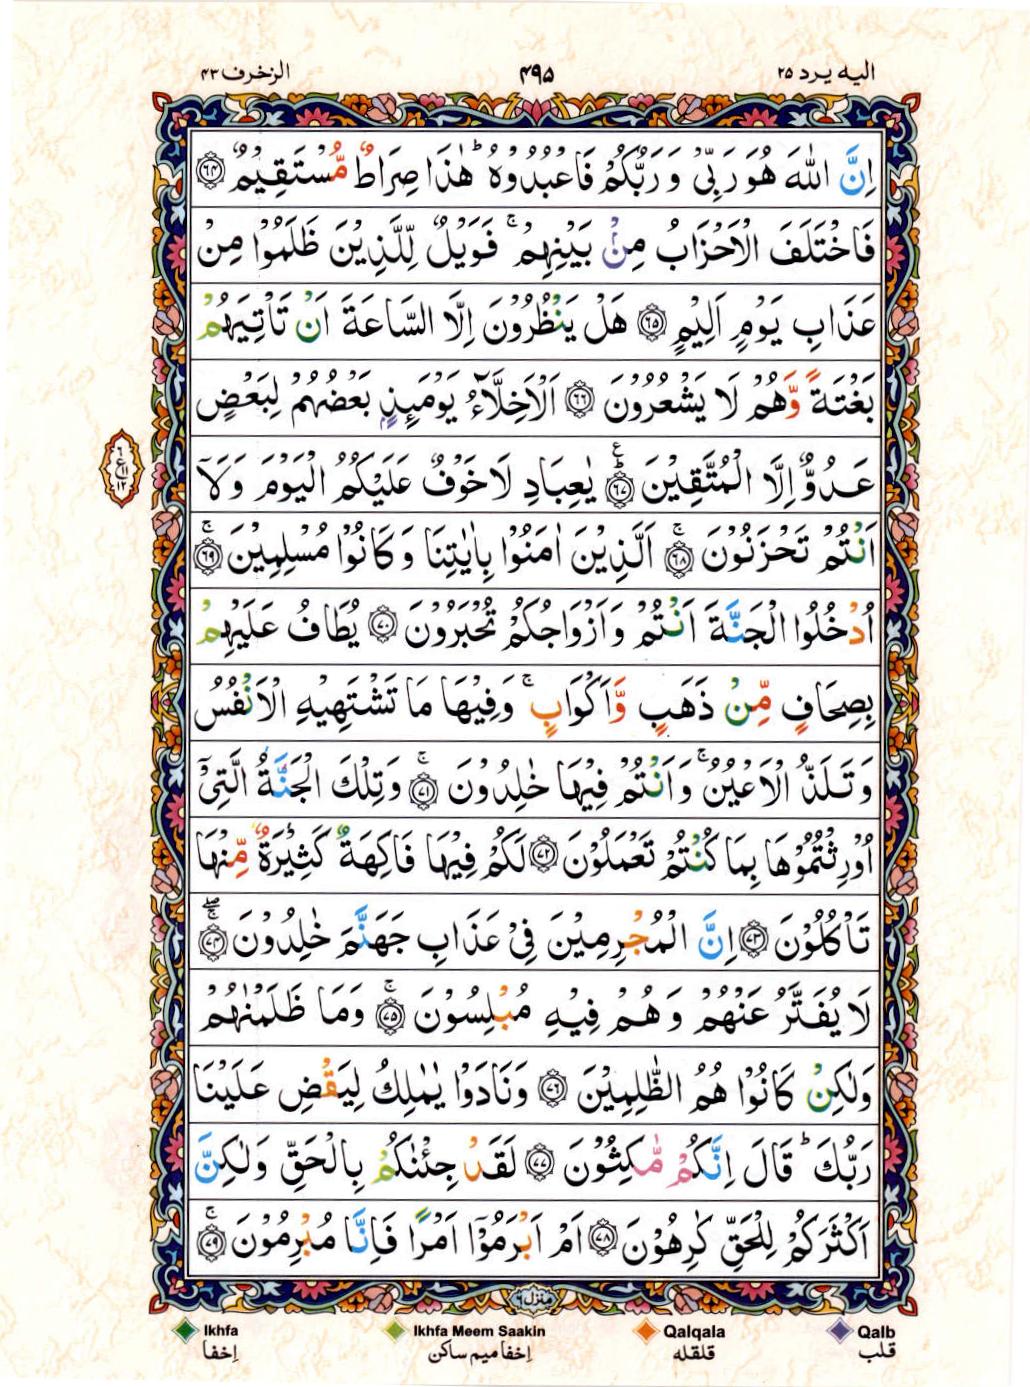 الیہ یرد ۲۵
۴۹۵
الزخرف ۴۳
اِنَّ اللّٰهَ هُوَ رَبِّیْ وَ رَبُّكُمْ فَاعْبُدُوْهُ ؕ هٰذَا صِرَاطٌ مُّسْتَقِیْمٌ ﴿۶۴﴾
فَاخْتَلَفَ الْاَحْزَابُ مِنْۢ بَیْنِهِمْ ۚ فَوَیْلٌ لِّلَّذِیْنَ ظَلَمُوْا مِنْ
عَذَابِ یَوْمٍ اَلِیْمٍ ﴿۶۵﴾ هَلْ یَنْظُرُوْنَ اِلَّا السَّاعَةَ اَنْ تَاْتِیَهُمْ
بَغْتَةً وَّهُمْ لَا یَشْعُرُوْنَ ﴿۶۶﴾ اَلْاَخِلَّآءُ یَوْمَىِٕذٍۭ بَعْضُهُمْ لِبَعْضٍ
عَدُوٌّ اِلَّا الْمُتَّقِیْنَ ﴿۶۷﴾ؕ ع یٰعِبَادِ لَا خَوْفٌ عَلَیْكُمُ الْیَوْمَ وَ لَاۤ
اَنْتُمْ تَحْزَنُوْنَ ﴿۶۸﴾ۚ اَلَّذِیْنَ اٰمَنُوْا بِاٰیٰتِنَا وَ كَانُوْا مُسْلِمِیْنَ ﴿۶۹﴾ۚ
اُدْخُلُوا الْجَنَّةَ اَنْتُمْ وَ اَزْوَاجُكُمْ تُحْبَرُوْنَ ﴿۷۰﴾ یُطَافُ عَلَیْهِمْ
بِصِحَافٍ مِّنْ ذَهَبٍ وَّ اَكْوَابٍ ۚ وَ فِیْهَا مَا تَشْتَهِیْهِ الْاَنْفُسُ
وَ تَلَذُّ الْاَعْیُنُ ۚ وَ اَنْتُمْ فِیْهَا خٰلِدُوْنَ ﴿۷۱﴾ۚ وَ تِلْكَ الْجَنَّةُ الَّتِیْۤ
اُوْرِثْتُمُوْهَا بِمَا كُنْتُمْ تَعْمَلُوْنَ ﴿۷۲﴾ لَكُمْ فِیْهَا فَاكِهَةٌ كَثِیْرَةٌ مِّنْهَا
تَاْكُلُوْنَ ﴿۷۳﴾ اِنَّ الْمُجْرِمِیْنَ فِیْ عَذَابِ جَهَنَّمَ خٰلِدُوْنَ ﴿۷۴﴾ۚۖ
لَا یُفَتَّرُ عَنْهُمْ وَ هُمْ فِیْهِ مُبْلِسُوْنَ ﴿۷۵﴾ۚ وَ مَا ظَلَمْنٰهُمْ
وَ لٰكِنْ كَانُوْا هُمُ الظّٰلِمِیْنَ ﴿۷۶﴾ وَ نَادَوْا یٰمٰلِكُ لِیَقْضِ عَلَیْنَا
رَبُّكَ ؕ قَالَ اِنَّكُمْ مّٰكِثُوْنَ ﴿۷۷﴾ لَقَدْ جِئْنٰكُمْ بِالْحَقِّ وَ لٰكِنَّ
اَكْثَرَكُمْ لِلْحَقِّ كٰرِهُوْنَ ﴿۷۸﴾ اَمْ اَبْرَمُوْۤا اَمْرًا فَاِنَّا مُبْرِمُوْنَ ﴿۷۹﴾ۚ
۶
ع ۱۱
۱۲
منزل ۶
Ikhfa اِخفا
Ikhfa Meem Saakin اِخفا میم ساکن
Qalqala قلقله
Qalb قلب